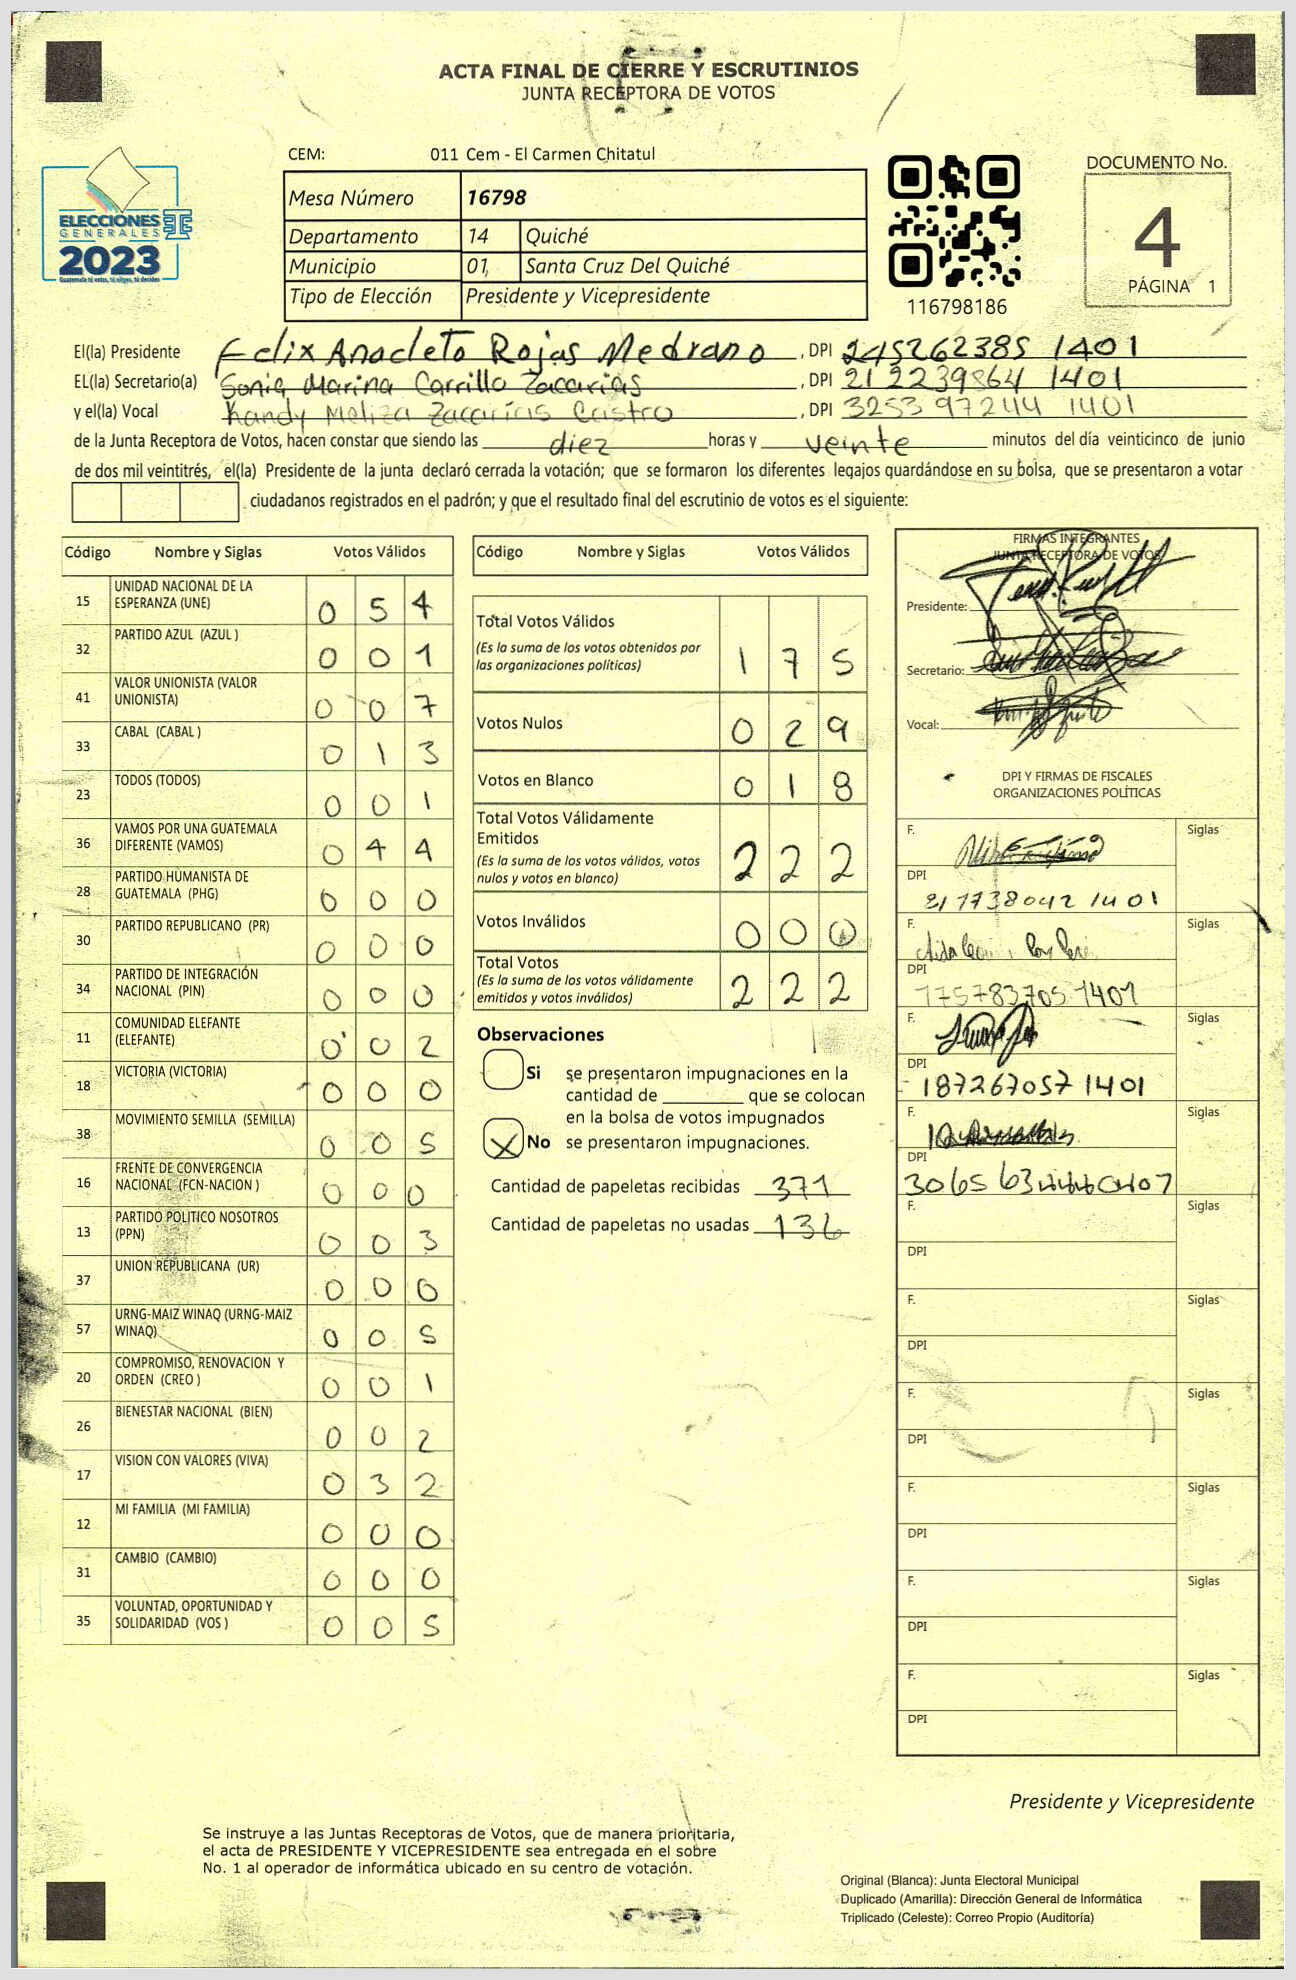 ACTA FINAL DE CIERRE Y ESCRUTINIOS
JUNTA RECEPTORA DE VOTOS
CEM: 011 Cem - El Carmen Chitatul
Mesa Número 16798
Departamento 14 Quiché
Municipio 01, Santa Cruz Del Quiché
Tipo de Elección Presidente y Vicepresidente
ELECCIONES
GENERALES
2023
Guatemala tú votas, tú eliges, tú decides
116798186
DOCUMENTO No.
4
PÁGINA 1
El(la) Presidente Felix Anacleto Rojas Medrano , DPI 245262385 1401
EL(la) Secretario(a) Sonia Marina Carrillo Zacarias , DPI 21 2239864 1401
y el(la) Vocal Kandy Meliza Zacarías Castro , DPI 3253 97244 1401
de la Junta Receptora de Votos, hacen constar que siendo las diez horas y veinte minutos del día veinticinco de junio
de dos mil veintitrés, el(la) Presidente de la junta declaró cerrada la votación; que se formaron los diferentes legajos quardándose en su bolsa, que se presentaron a votar
ciudadanos registrados en el padrón; y que el resultado final del escrutinio de votos es el siguiente:
Código Nombre y Siglas Votos Válidos
15 UNIDAD NACIONAL DE LA ESPERANZA (UNE) 0 5 4
32 PARTIDO AZUL (AZUL ) 0 0 1
41 VALOR UNIONISTA (VALOR UNIONISTA) 0 0 7
33 CABAL (CABAL ) 0 1 3
23 TODOS (TODOS) 0 0 1
36 VAMOS POR UNA GUATEMALA DIFERENTE (VAMOS) 0 4 4
28 PARTIDO HUMANISTA DE GUATEMALA (PHG) 0 0 0
30 PARTIDO REPUBLICANO (PR) 0 0 0
34 PARTIDO DE INTEGRACIÓN NACIONAL (PIN) 0 0 0
11 COMUNIDAD ELEFANTE (ELEFANTE) 0 0 2
18 VICTORIA (VICTORIA) 0 0 0
38 MOVIMIENTO SEMILLA (SEMILLA) 0 0 5
16 FRENTE DE CONVERGENCIA NACIONAL (FCN-NACION ) 0 0 0
13 PARTIDO POLITICO NOSOTROS (PPN) 0 0 3
37 UNION REPUBLICANA (UR) 0 0 0
57 URNG-MAIZ WINAQ (URNG-MAIZ WINAQ) 0 0 5
20 COMPROMISO, RENOVACION Y ORDEN (CREO ) 0 0 1
26 BIENESTAR NACIONAL (BIEN) 0 0 2
17 VISION CON VALORES (VIVA) 0 3 2
12 MI FAMILIA (MI FAMILIA) 0 0 0
31 CAMBIO (CAMBIO) 0 0 0
35 VOLUNTAD, OPORTUNIDAD Y SOLIDARIDAD (VOS ) 0 0 5
Código Nombre y Siglas Votos Válidos
Total Votos Válidos 1 7 5
(Es la suma de los votos obtenidos por
las organizaciones políticas)
Votos Nulos 0 2 9
Votos en Blanco 0 1 8
Total Votos Válidamente
Emitidos 2 2 2
(Es la suma de los votos válidos, votos
nulos y votos en blanco)
Votos Inválidos 0 0 0
Total Votos 2 2 2
(Es la suma de los votos válidamente
emitidos y votos inválidos)
Observaciones
Si se presentaron impugnaciones en la
cantidad de que se colocan
en la bolsa de votos impugnados
X No se presentaron impugnaciones.
Cantidad de papeletas recibidas 371
Cantidad de papeletas no usadas 136
FIRMAS INTEGRANTES
JUNTA RECEPTORA DE VOTOS
Presidente:
Secretario:
Vocal:
DPI Y FIRMAS DE FISCALES
ORGANIZACIONES POLÍTICAS
F. Siglas
DPI
21 1738042 1401
F. Siglas
DPI
1757837051401
F. Siglas
DPI
187267057 1401
F. Siglas
DPI
3065 63
F. Siglas
DPI
F. Siglas
DPI
F. Siglas
DPI
F. Siglas
DPI
F. Siglas
DPI
F. Siglas
DPI
Presidente y Vicepresidente
Se instruye a las Juntas Receptoras de Votos, que de manera prioritaria,
el acta de PRESIDENTE Y VICEPRESIDENTE sea entregada en el sobre
No. 1 al operador de informática ubicado en su centro de votación.
Original (Blanca): Junta Electoral Municipal
Duplicado (Amarilla): Dirección General de Informática
Triplicado (Celeste): Correo Propio (Auditoría)